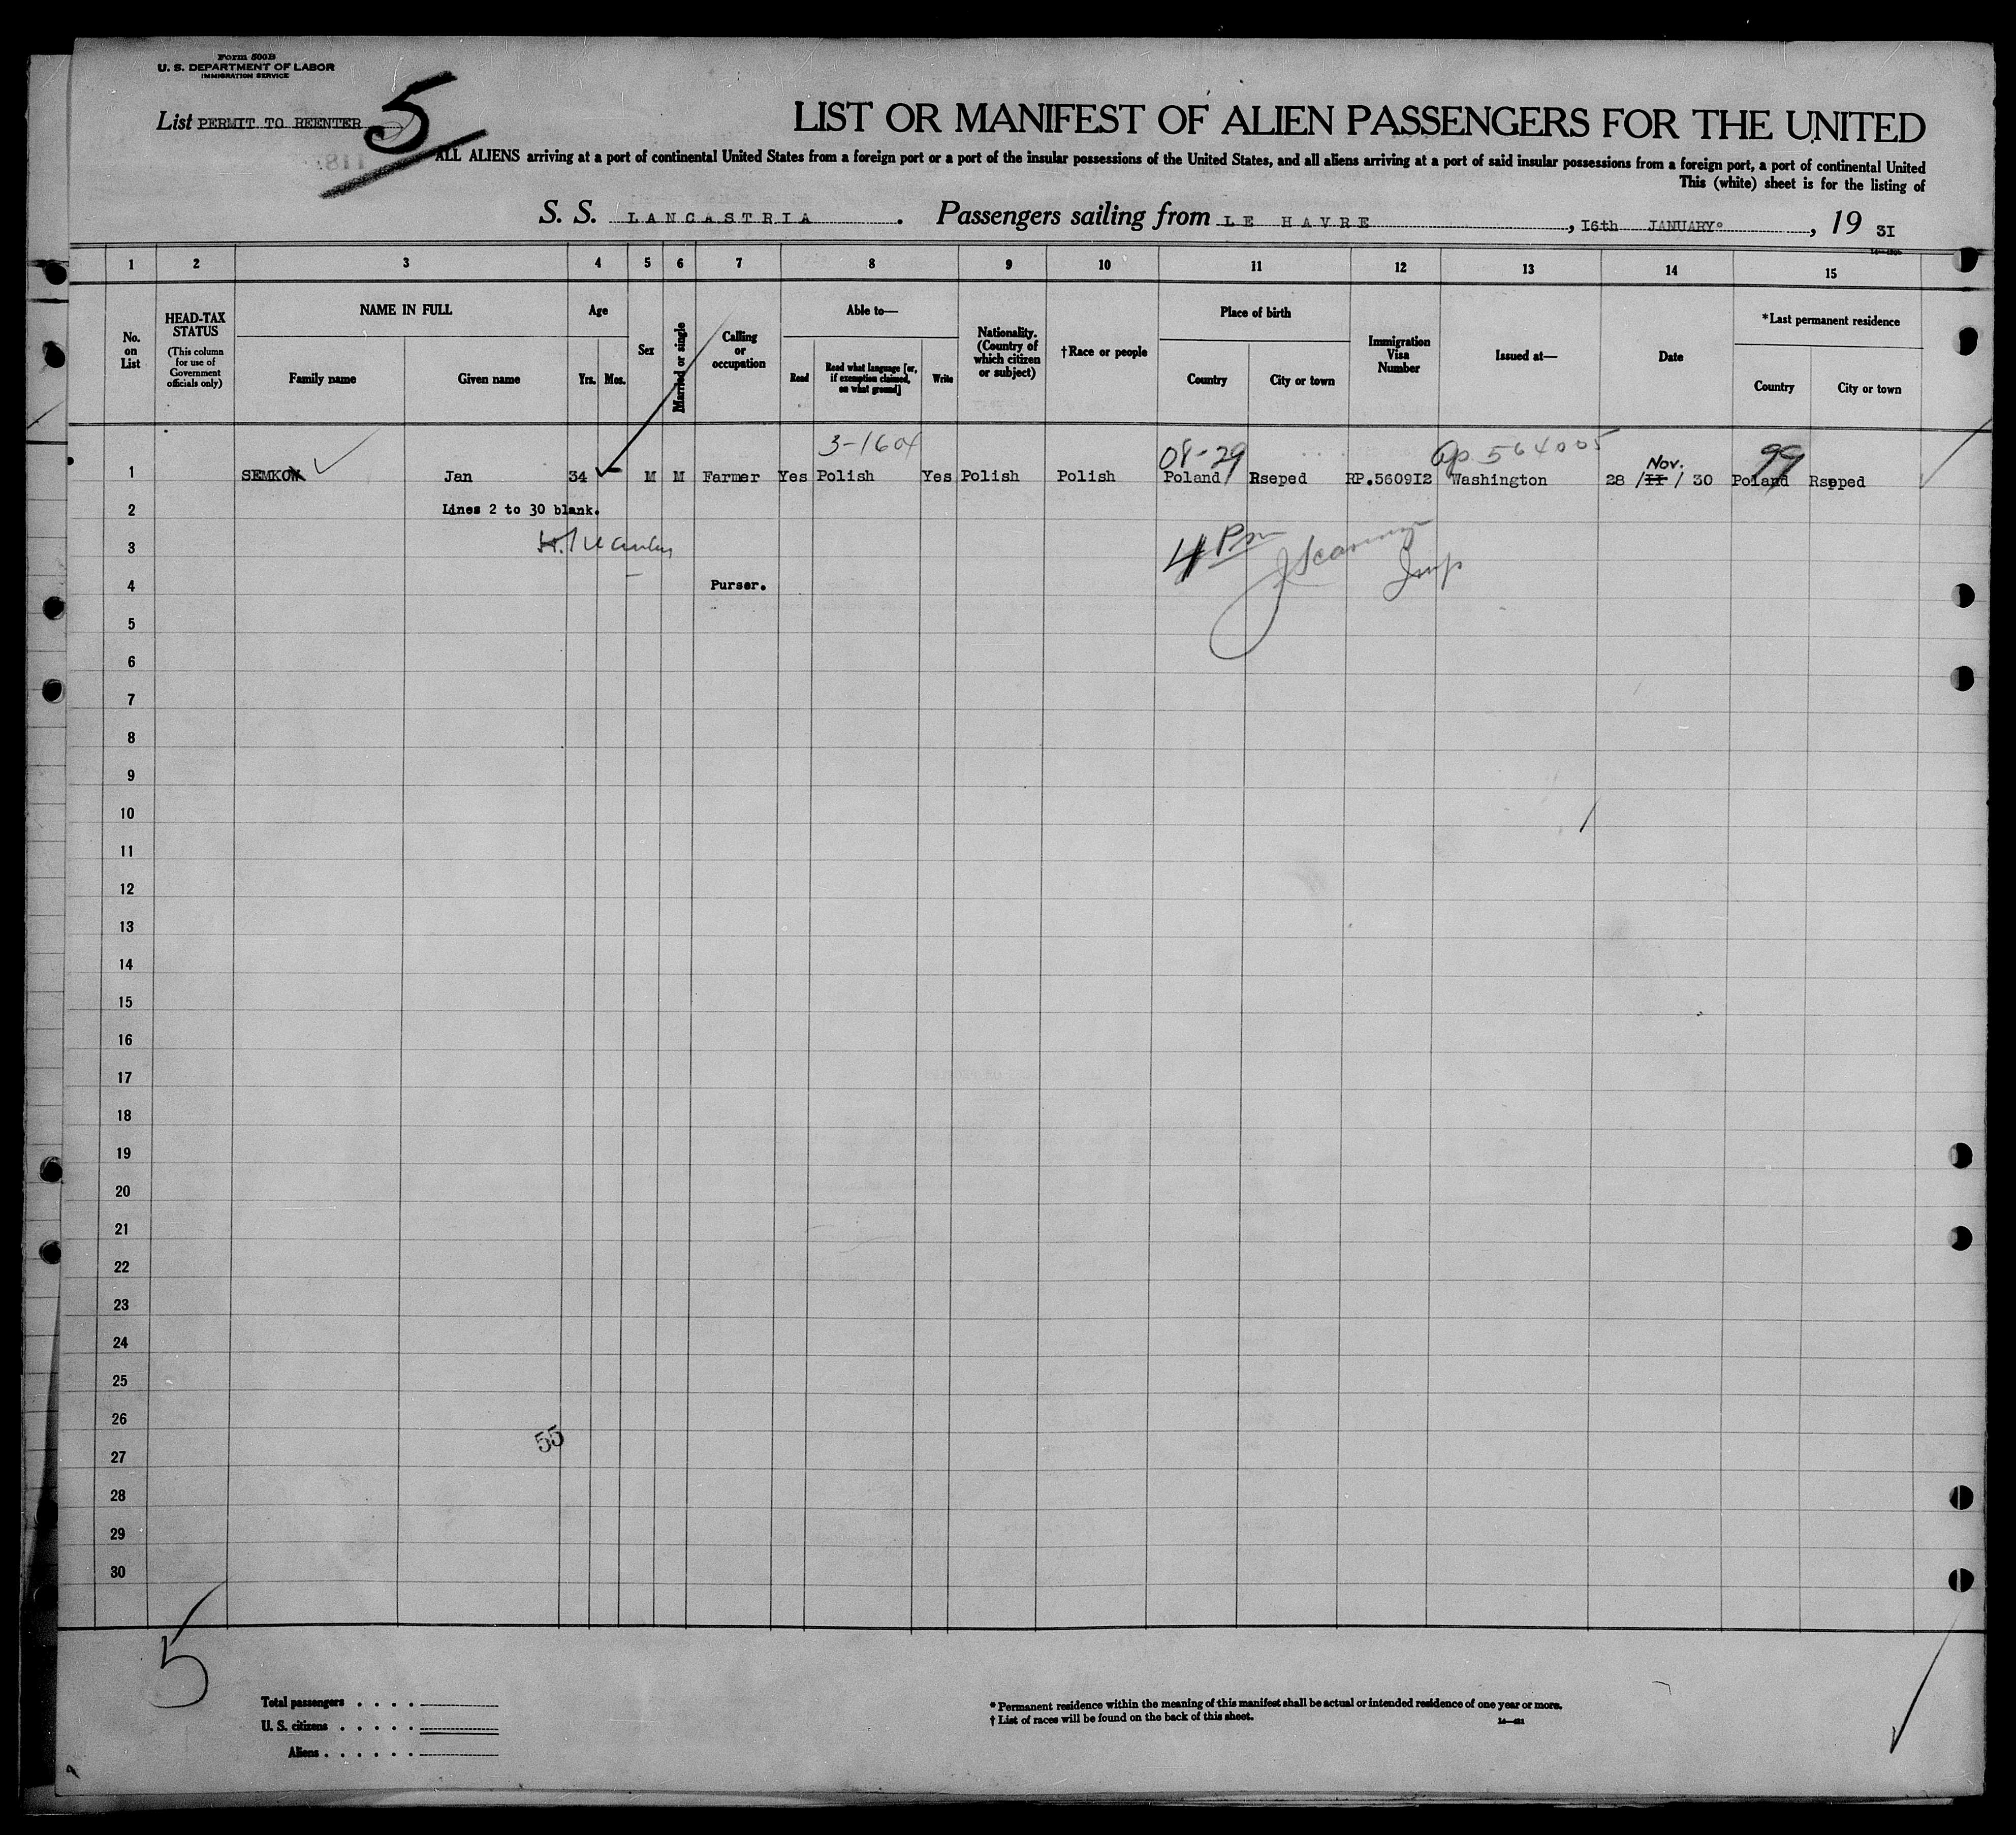 Form 500B
U. S. DEPARTMENT OF LABOR
IMMIGRATION SERVICE
List PERMIT TO REENTER 5
LIST OR MANIFEST OF ALIEN PASSENGERS FOR THE UNITED
ALL ALIENS arriving at a port of continental United States from a foreign port or a port of the insular possessions of the United States, and all aliens arriving at a port of said insular possessions from a foreign port, a port of continental United
This (white) sheet is for the listing of
S. S. LANCASTRIA . Passengers sailing from LE HAVRE , 16th JANUARY , 19 31
1 2 3 4 5 6 7 8 9 10 11 12 13 14 15
No. on List
HEAD-TAX STATUS
(This column for use of Government officials only)
NAME IN FULL
Family name Given name
Age
Yrs. Mos.
Sex
Married or single
Calling or occupation
Able to—
Read Read what language [or, if exemption claimed, on what ground] Write
Nationality. (Country of which citizen or subject)
†Race or people
Place of birth
Country City or town
Immigration Visa Number
Issued at—
Date
*Last permanent residence
Country City or town
3-1604 08-29 564005 Nov. 99
1 SEMKOW Jan 34 - M M Farmer Yes Polish Yes Polish Polish Poland Rseped RP.560912 Washington 28 /II/ 30 Poland Rseped
2 Lines 2 to 30 blank.
3 4 Pm
4 Purser.
5
6
7
8
9
10
11
12
13
14
15
16
17
18
19
20
21
22
23
24
25
26
55
27
28
29
30
5
Total passengers . . . .
U. S. citizens . . . . .
Aliens . . . . . .
* Permanent residence within the meaning of this manifest shall be actual or intended residence of one year or more.
† List of races will be found on the back of this sheet.